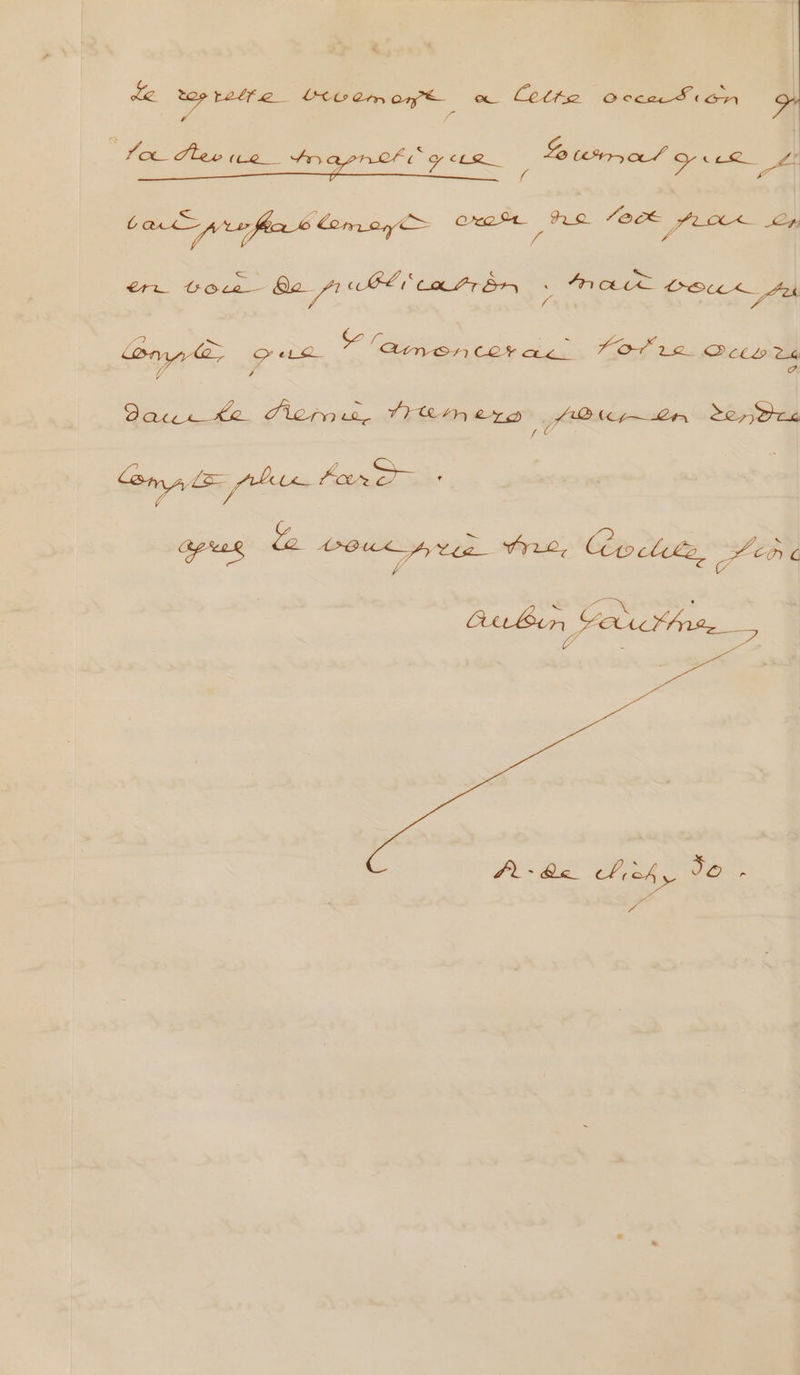 Je regrette vivement a cette occasion q
la Revue magnetique Journal que
tout probablement creer ne soit plus en
en voie de publication, mais vous pu
compter que J'annoncerai votre ouvra
Dans le Premier numero pour en rendre
compte plus tard.
agreez Je vous prie mes
Aubin Gauthier
R. de clichy 30.